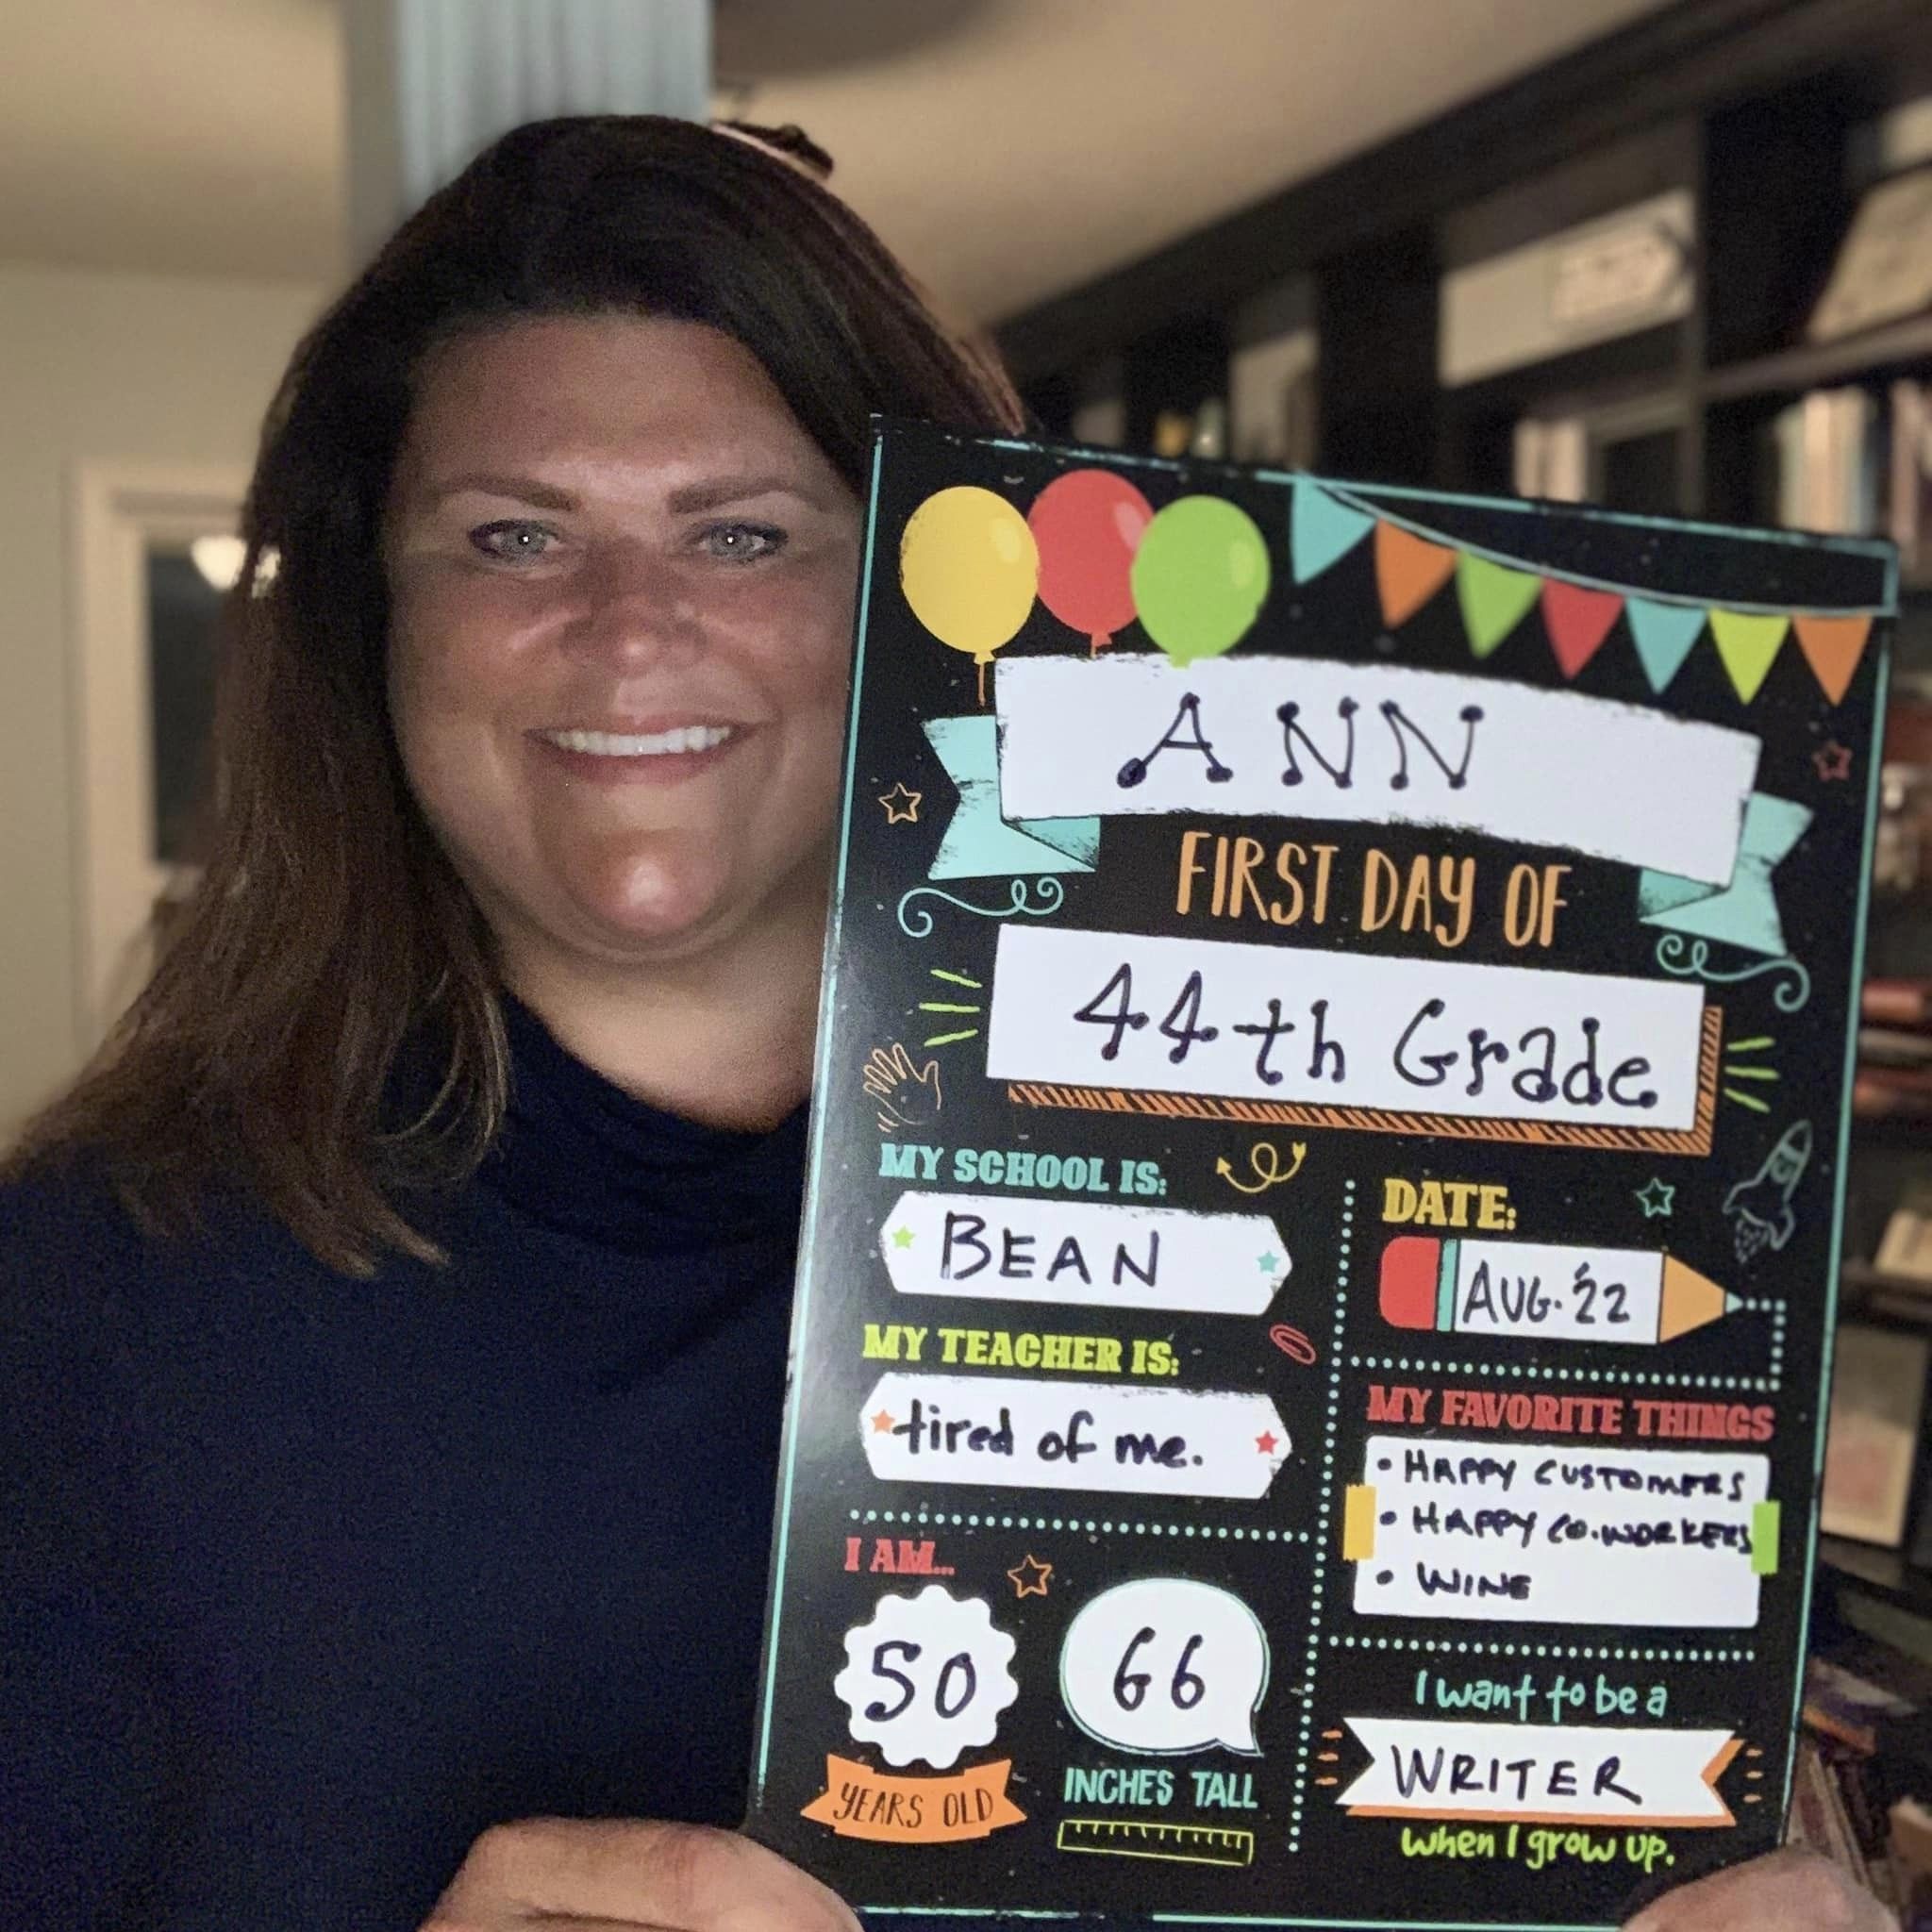 ANN
FIRST DAY OF
44th Grade
MY SCHOOL IS:
BEAN
MY TEACHER IS:
tired of me.
I AM...
50
YEARS OLD
66
INCHES TALL
DATE:
AUG. '22
MY FAVORITE THINGS
• HAPPY CUSTOMERS
• HAPPY CO.WORKERS
• WINE
I want to be a
WRITER
when I grow up.